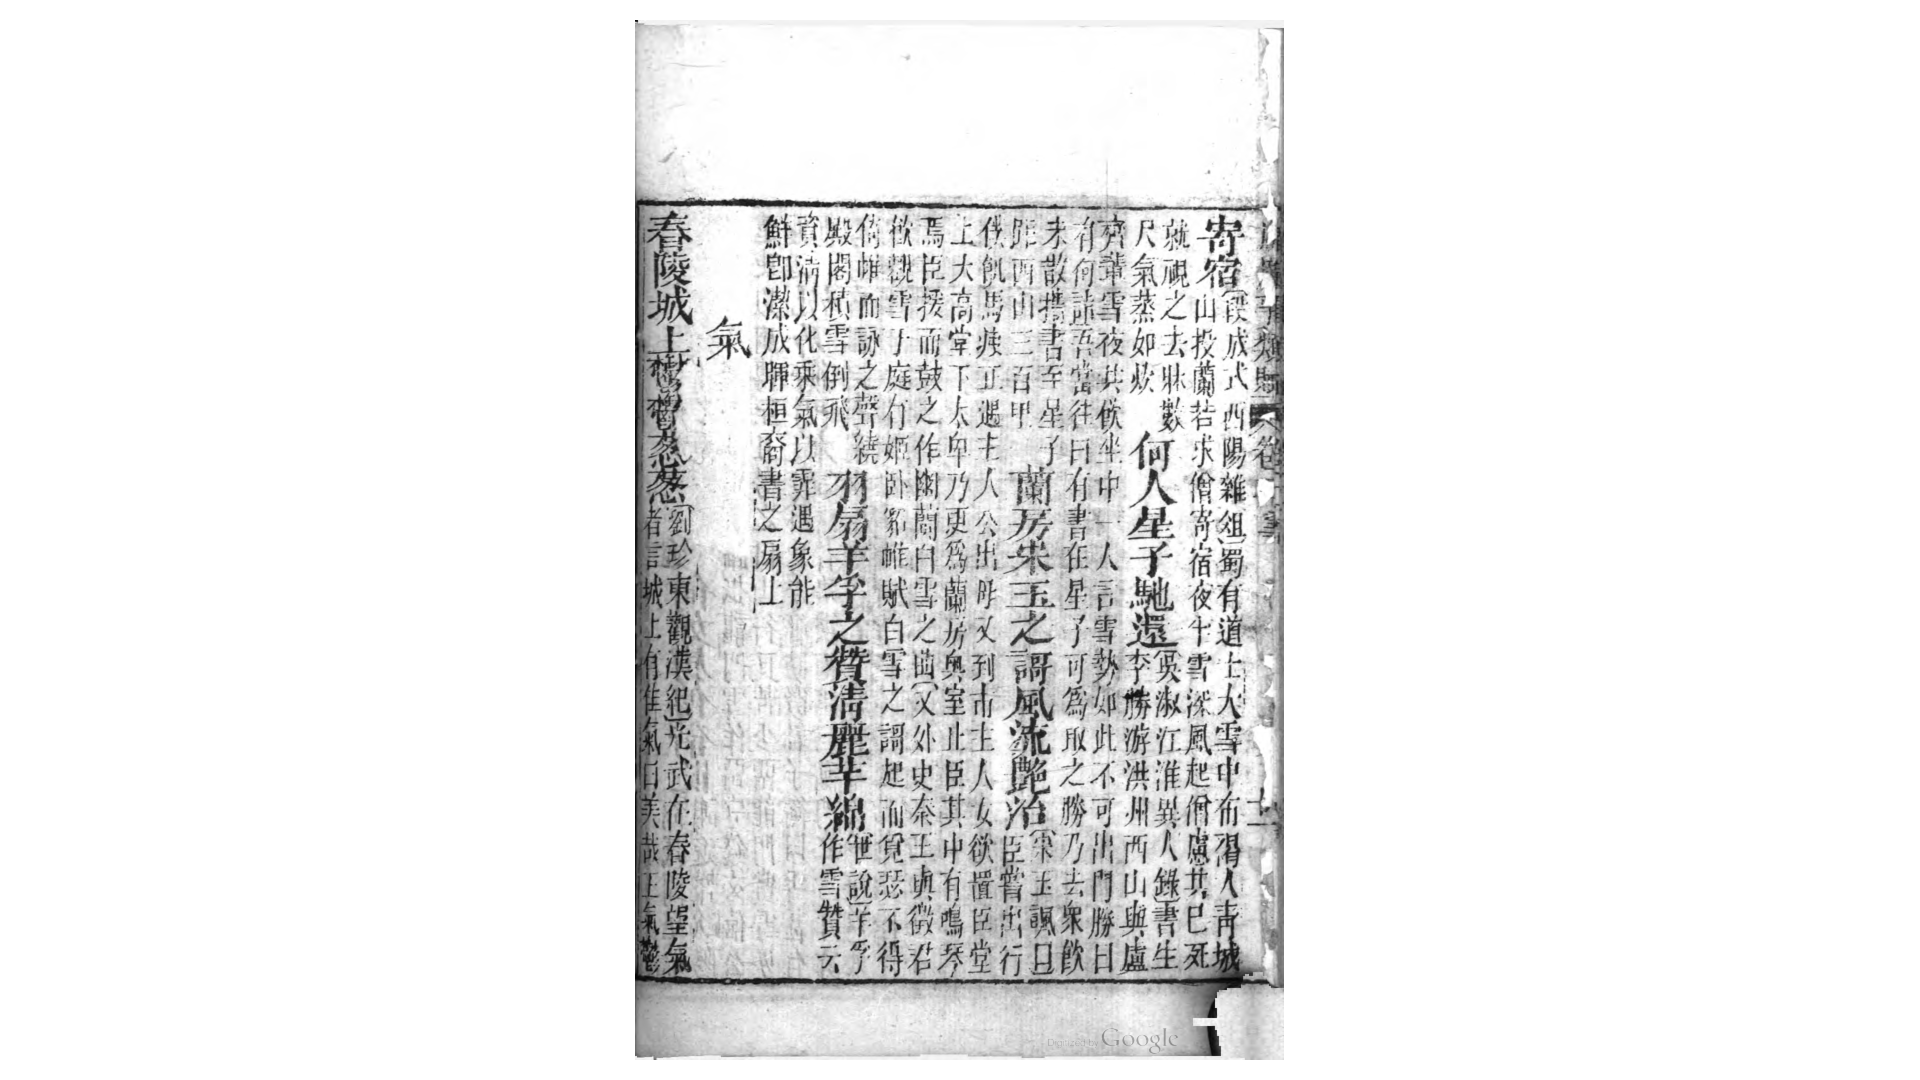 寄宿
段成式酉陽雜俎蜀有道士大雪中布褐入青城
山投蘭若求僧寄宿夜半雪深風起僧慮其已死
就視之去牀數
尺氣蒸如炊
何人星子馳還
吳淑江淮異人錄書生
李勝游洪州西山與盧
齊輩雪夜共飲坐中一人言雪勢如此不可出門勝曰
有何詣吾當往曰有書在星子可為取之勝乃去衆飲
未散攜書至星子
距西山三百里
蘭房宋玉之謌風流艷冶
宋玉諷曰
臣嘗出行
僕飢馬疲正遇主人公出又到市主人女欲置臣堂
上大高堂下太卑乃更為蘭房奥室止臣其中有鳴琴
焉臣援而鼓之作幽蘭白雪之曲又外史秦王與徵君
欲觀雪于庭有姬卧貂帷賦白雪之謌起而覓瑟不得
倚帷而詠之聲繞
殿閣積雪倒飛
羽扇羊孚之贊清麗芊綿
世說羊孚
作雪贊云
資清以化乘氣以霏遇象能
鮮卽潔成輝桓裔書之扇上
氣
春陵城上鬱鬱葱葱
劉珍東觀漢紀光武在春陵望氣
者言城上有佳氣曰美哉王氣鬱
Digitized by Google